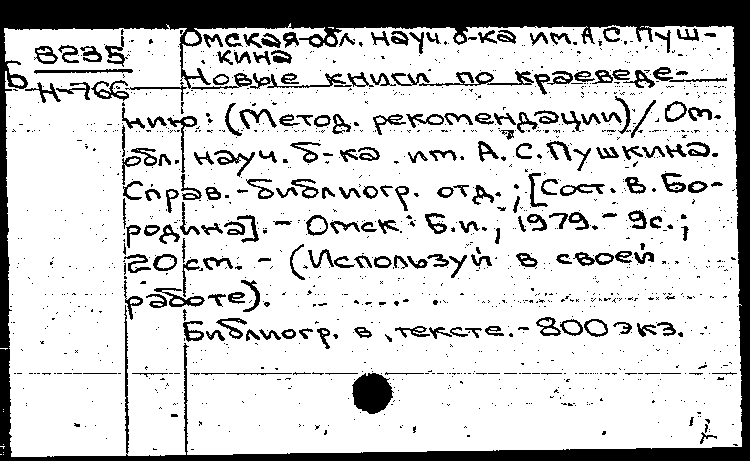 Омская обл. науч. б-ка им. А.С. Пуш-
кина
Б 8235
Н-766
Новые книги по краеведе-
нию: (Метод. рекомендации) / Ом.
обл. науч. б-ка им. А.С. Пушкина.
Справ.-библиогр. отд.; [Сост. В. Бо-
родина]. - Омск: Б.и., 1979. - 9с.;
20 см. - (Используй в своей
работе).
Библиогр. в тексте. - 800 экз.